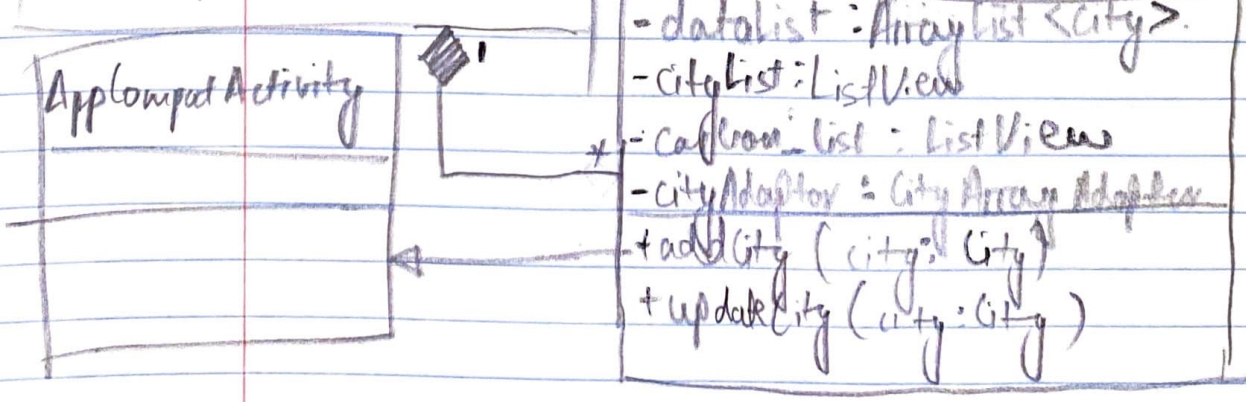 AppCompatActivity
1
*
-dataList : ArrayList <City>
-cityList : ListView
- : ListView
-cityAdaptor : CityArrayAdapter
+ addCity (city: City)
+ updateCity (city: City)